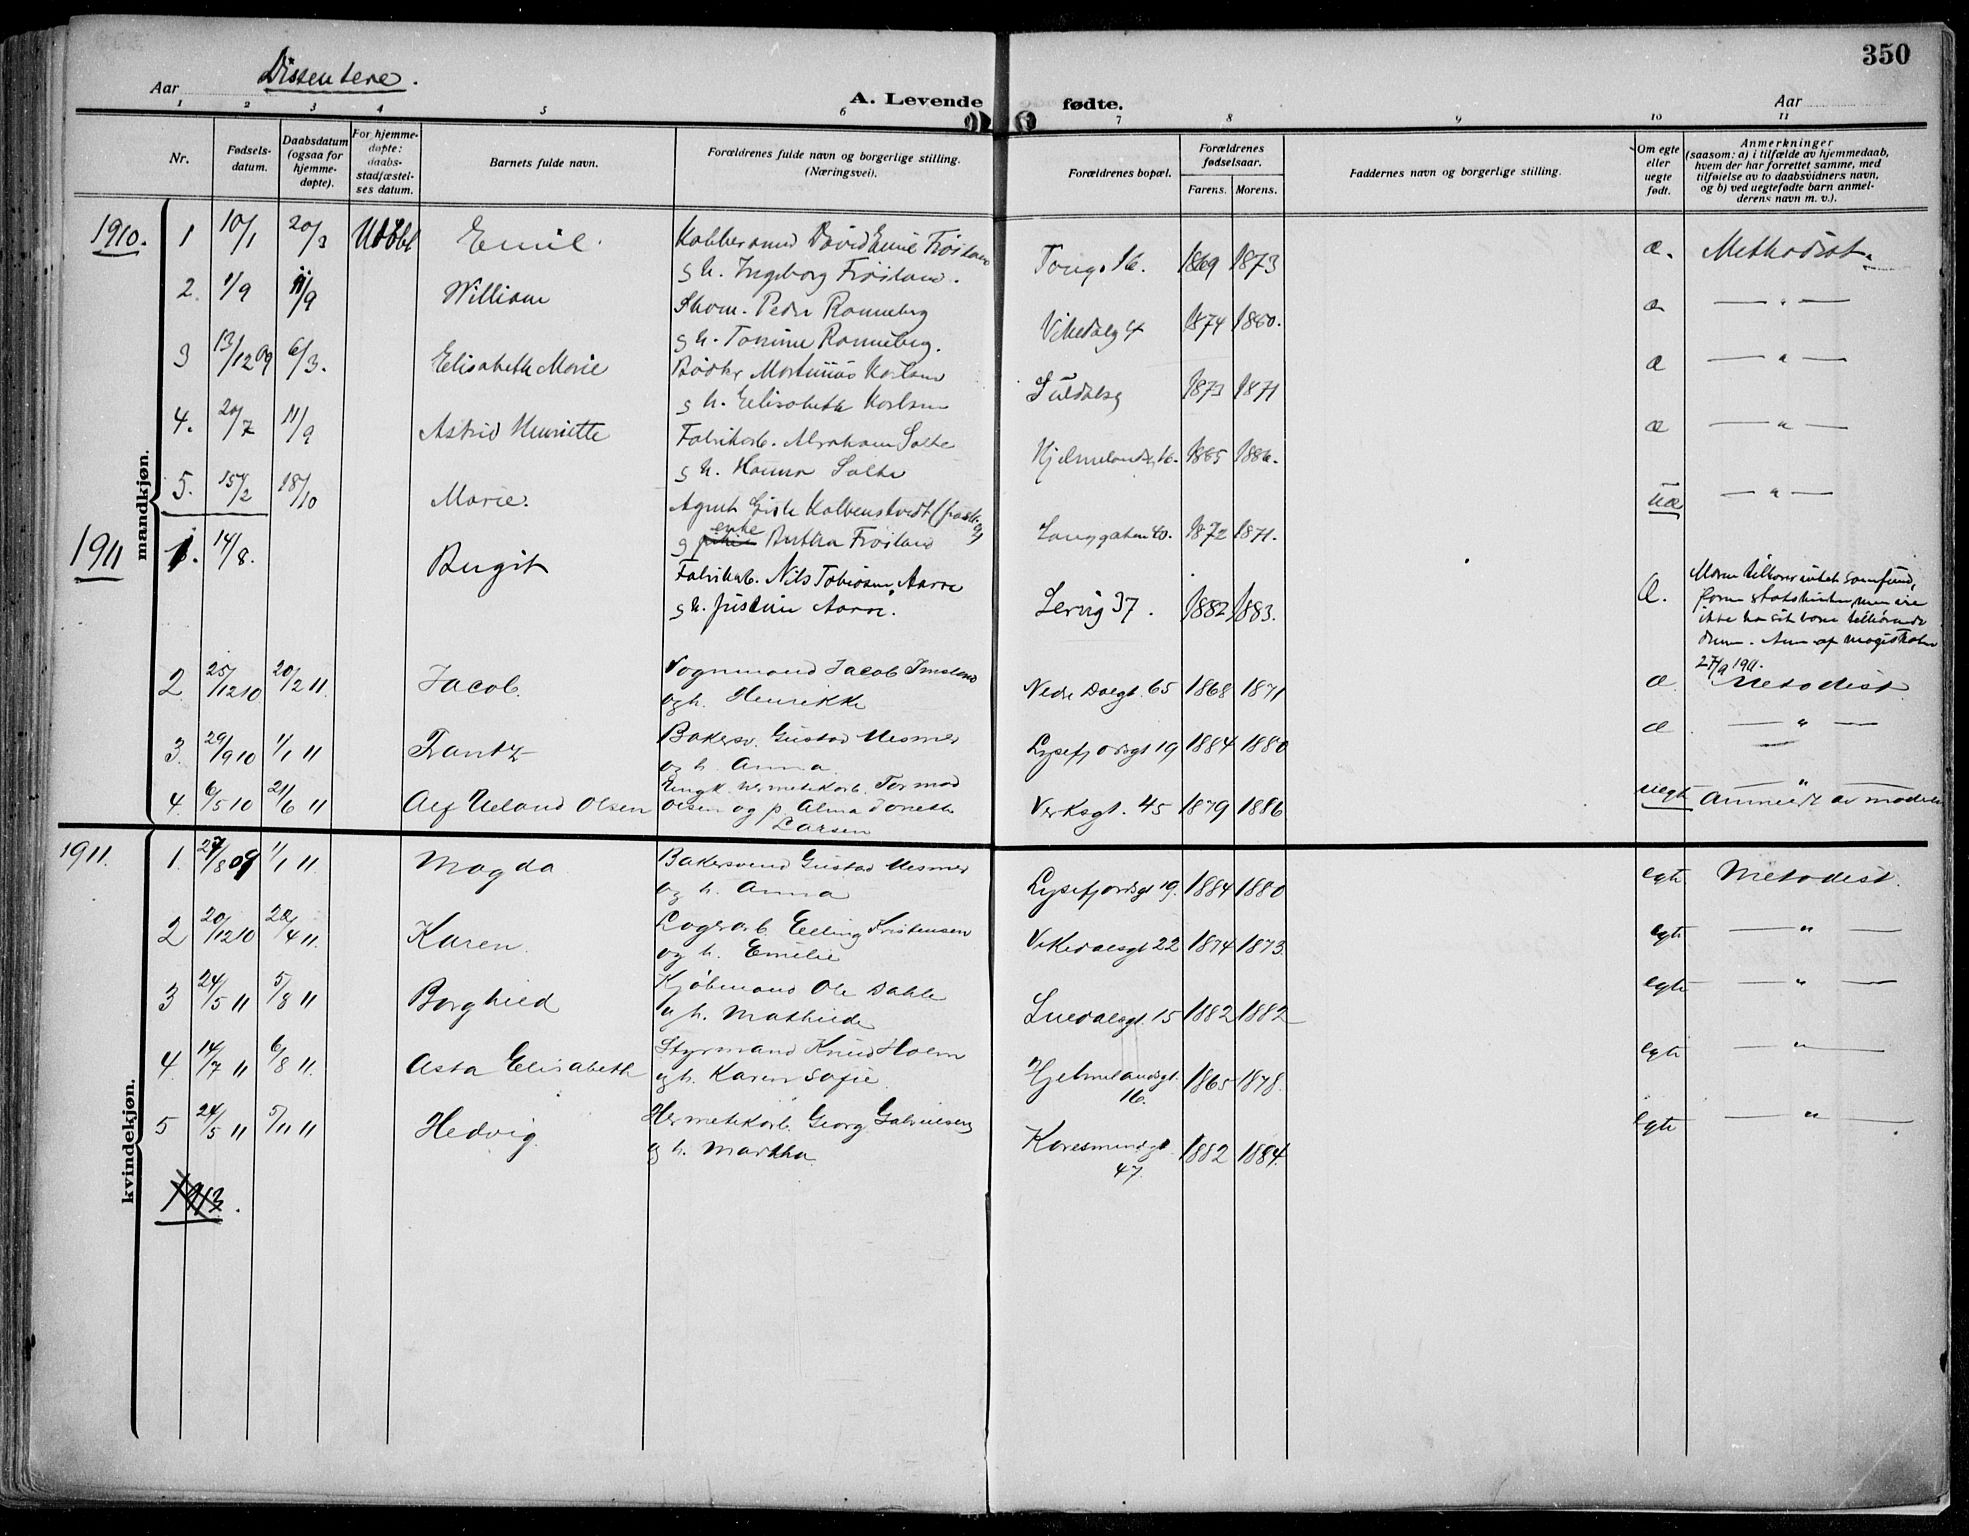 350
Dissentere.
Aar
A. Levende fødte.
Aar
1 2 3 4 5 6 7 8 9 10 11
Nr.
Fødsels-
datum.
Daabsdatum
(ogsaa for
hjemme-
døpte).
For hjemme-
døpte:
daabs-
stadfæstel-
ses datum.
Barnets fulde navn.
Forældrenes fulde navn og borgerlige stilling.
(Næringsvei).
Forældrenes bopæl.
Forældrenes
fødselsaar.
Farens. Morens.
Faddernes navn og borgerlige stilling.
Om egte
eller
uegte
født.
Anmerkninger
(saasom: a) i tilfælde av hjemmedaab,
hvem der har forrettet samme, med
tilføielse av to daabsvidners navn,
og b) ved uegtefødte barn anmel-
derens navn m. v.).
mandkjøn.
1910. 1 10/1 20/3 Emil David Emil Frøiland Tougt 16. 1869 1873 æ. Methodist
g h. Ingeborg Frøiland.
2. 1/9 11/9 William Peder Ronneberg Vikedalsg 4 1874 1880. æ — " —
g h. Tomine Ronneberg.
3 13/12 09 6/3. Elisabeth Marie Bødker Martinius Karlsen Suldalsg 1873 1871 æ — " —
g h. Elisabeth Karlsen
4. 20/7 11/9 Astrid Henriette Fabrikarb. Abraham Salte Hjelmelandsg. 16. 1885 1886. æ — " —
g h. Hanna Salte
5. 15/2 18/10 Marie. Agent Langgaten 40. 1872 1871. uæ — " —
g enke Bertha Frøiland
1911 1. 14/8. Birgit Fabrikarb. Nils Tobiasen Aarre Lervig 37. 1882 1883. Æ.
g h. Justine Aarre.
27/9 1911.
2 25/12 10 20/2 11. Jacob. Vognmand Jacob Imsland Nedre Dalgt. 65 1868 1871 æ. Metodist
og h. Henrikke
3. 29/9 10 1/1 11 Frantz Bakersv. Gustav Mesmer Lysefjordsgt 19 1884 1880 æ. — " —
og h. Anna
4. 6/5 10 21/6 11 Alf Ueland Olsen Ungk. hermetikarb. Tormod Verksgt. 45 1879 1886 uegte — " —
Olsen og p. Alma Tonette Anmeldt av moderen
Larsen
kvindekjøn.
1911. 1. 27/8 09 1/1 11 Magda Bakersvend Gustav Mesmer Lysefjordsgt 19. 1884 1880 egte Metodist.
og h. Anna
2 20/12 10 22/4 11. Karen. Lagerarb. Elling Kristensen Vikedalsgt 22 1874 1873. egte — " —
og h. Emilie
3 24/5 11 5/8 11 Borghild Kjøbmand Ole Dahle Suldalsgt. 15 1882 1882 egte — " —
og h. Mathilde
4. 14/7 11 6/8 11. Asta Elisabeth Styrmand Knud Holm Hjelmelandsgt. 1865 1878. egte — " —
og h. Karen Sofie. 16.
5 24/5 11 5/11 11 Hedvig. Hermetikarb. Georg Gabrielsen Karesmindegt. 1882 1884. egte — " —
og h. Martha. 47.
1913.